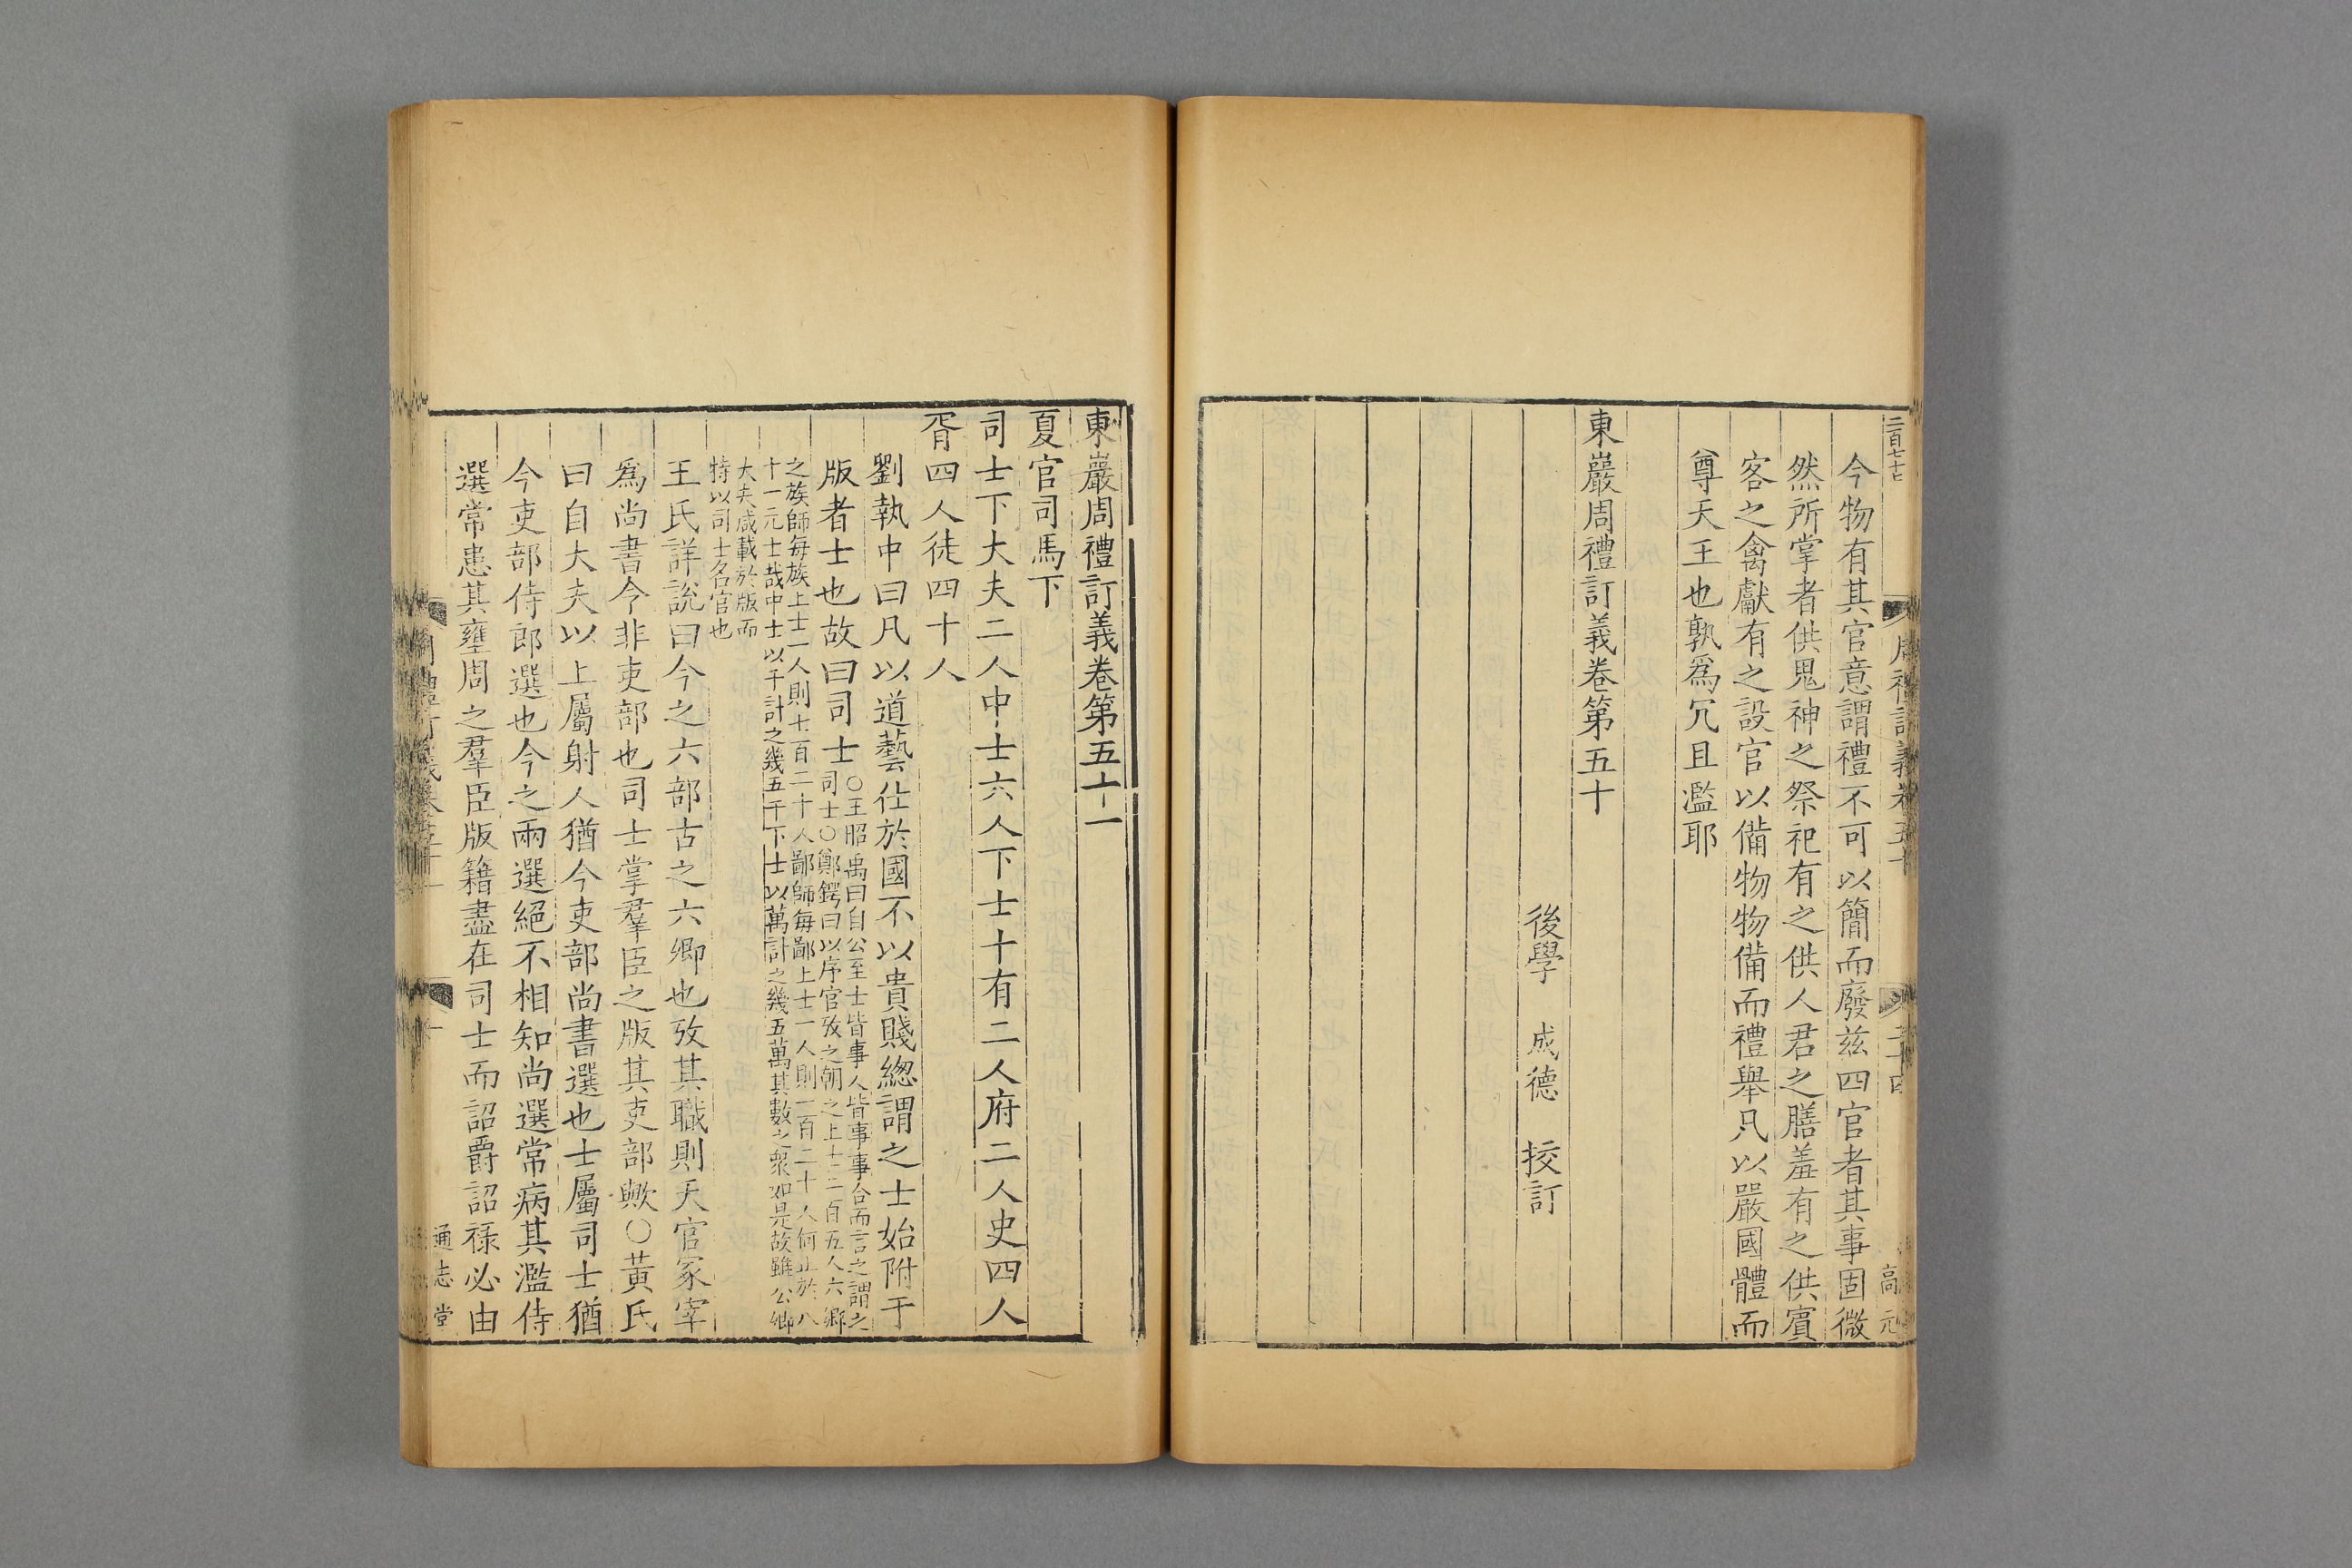 二百七十七
今物有其官意謂禮不可以簡而廢茲四官者其事固微
然所掌者供鬼神之祭祀有之供人君之膳羞有之供賓
客之禽獻有之設官以備物物備而禮舉凡以嚴國體而
尊天王也孰爲冗且濫耶
東巖周禮訂義卷第五十
後學 成德 挍訂
高元
東巖周禮訂義卷第五十一
夏官司馬下
司士下大夫二人中士六人下士十有二人府二人史四人
胥四人徒四十人
劉執中曰凡以道藝仕於國不以貴賤總謂之士始附于
版者士也故曰司士
○王昭禹曰自公至士皆事人皆事事合而言之謂之
司士○鄭鍔曰以序官攷之朝之上士二百五人六鄉
之族師每族上士一人則七百二十人鄙師每鄙上士一人則一百二十人何止於八
十一元士哉中士以千計之幾五千下士以萬計之幾五萬其數之衆如是故雖公卿
大夫咸載於版而
特以司士名官也
王氏詳說曰今之六部古之六卿也攷其職則天官冢宰
爲尚書今非吏部也司士掌羣臣之版其吏部歟○黃氏
曰自大夫以上屬射人猶今吏部尚書選也士屬司士猶
今吏部侍郎選也今之兩選絕不相知尚選常病其濫侍
選常患其壅周之羣臣版籍盡在司士而詔爵詔祿必由
通志堂